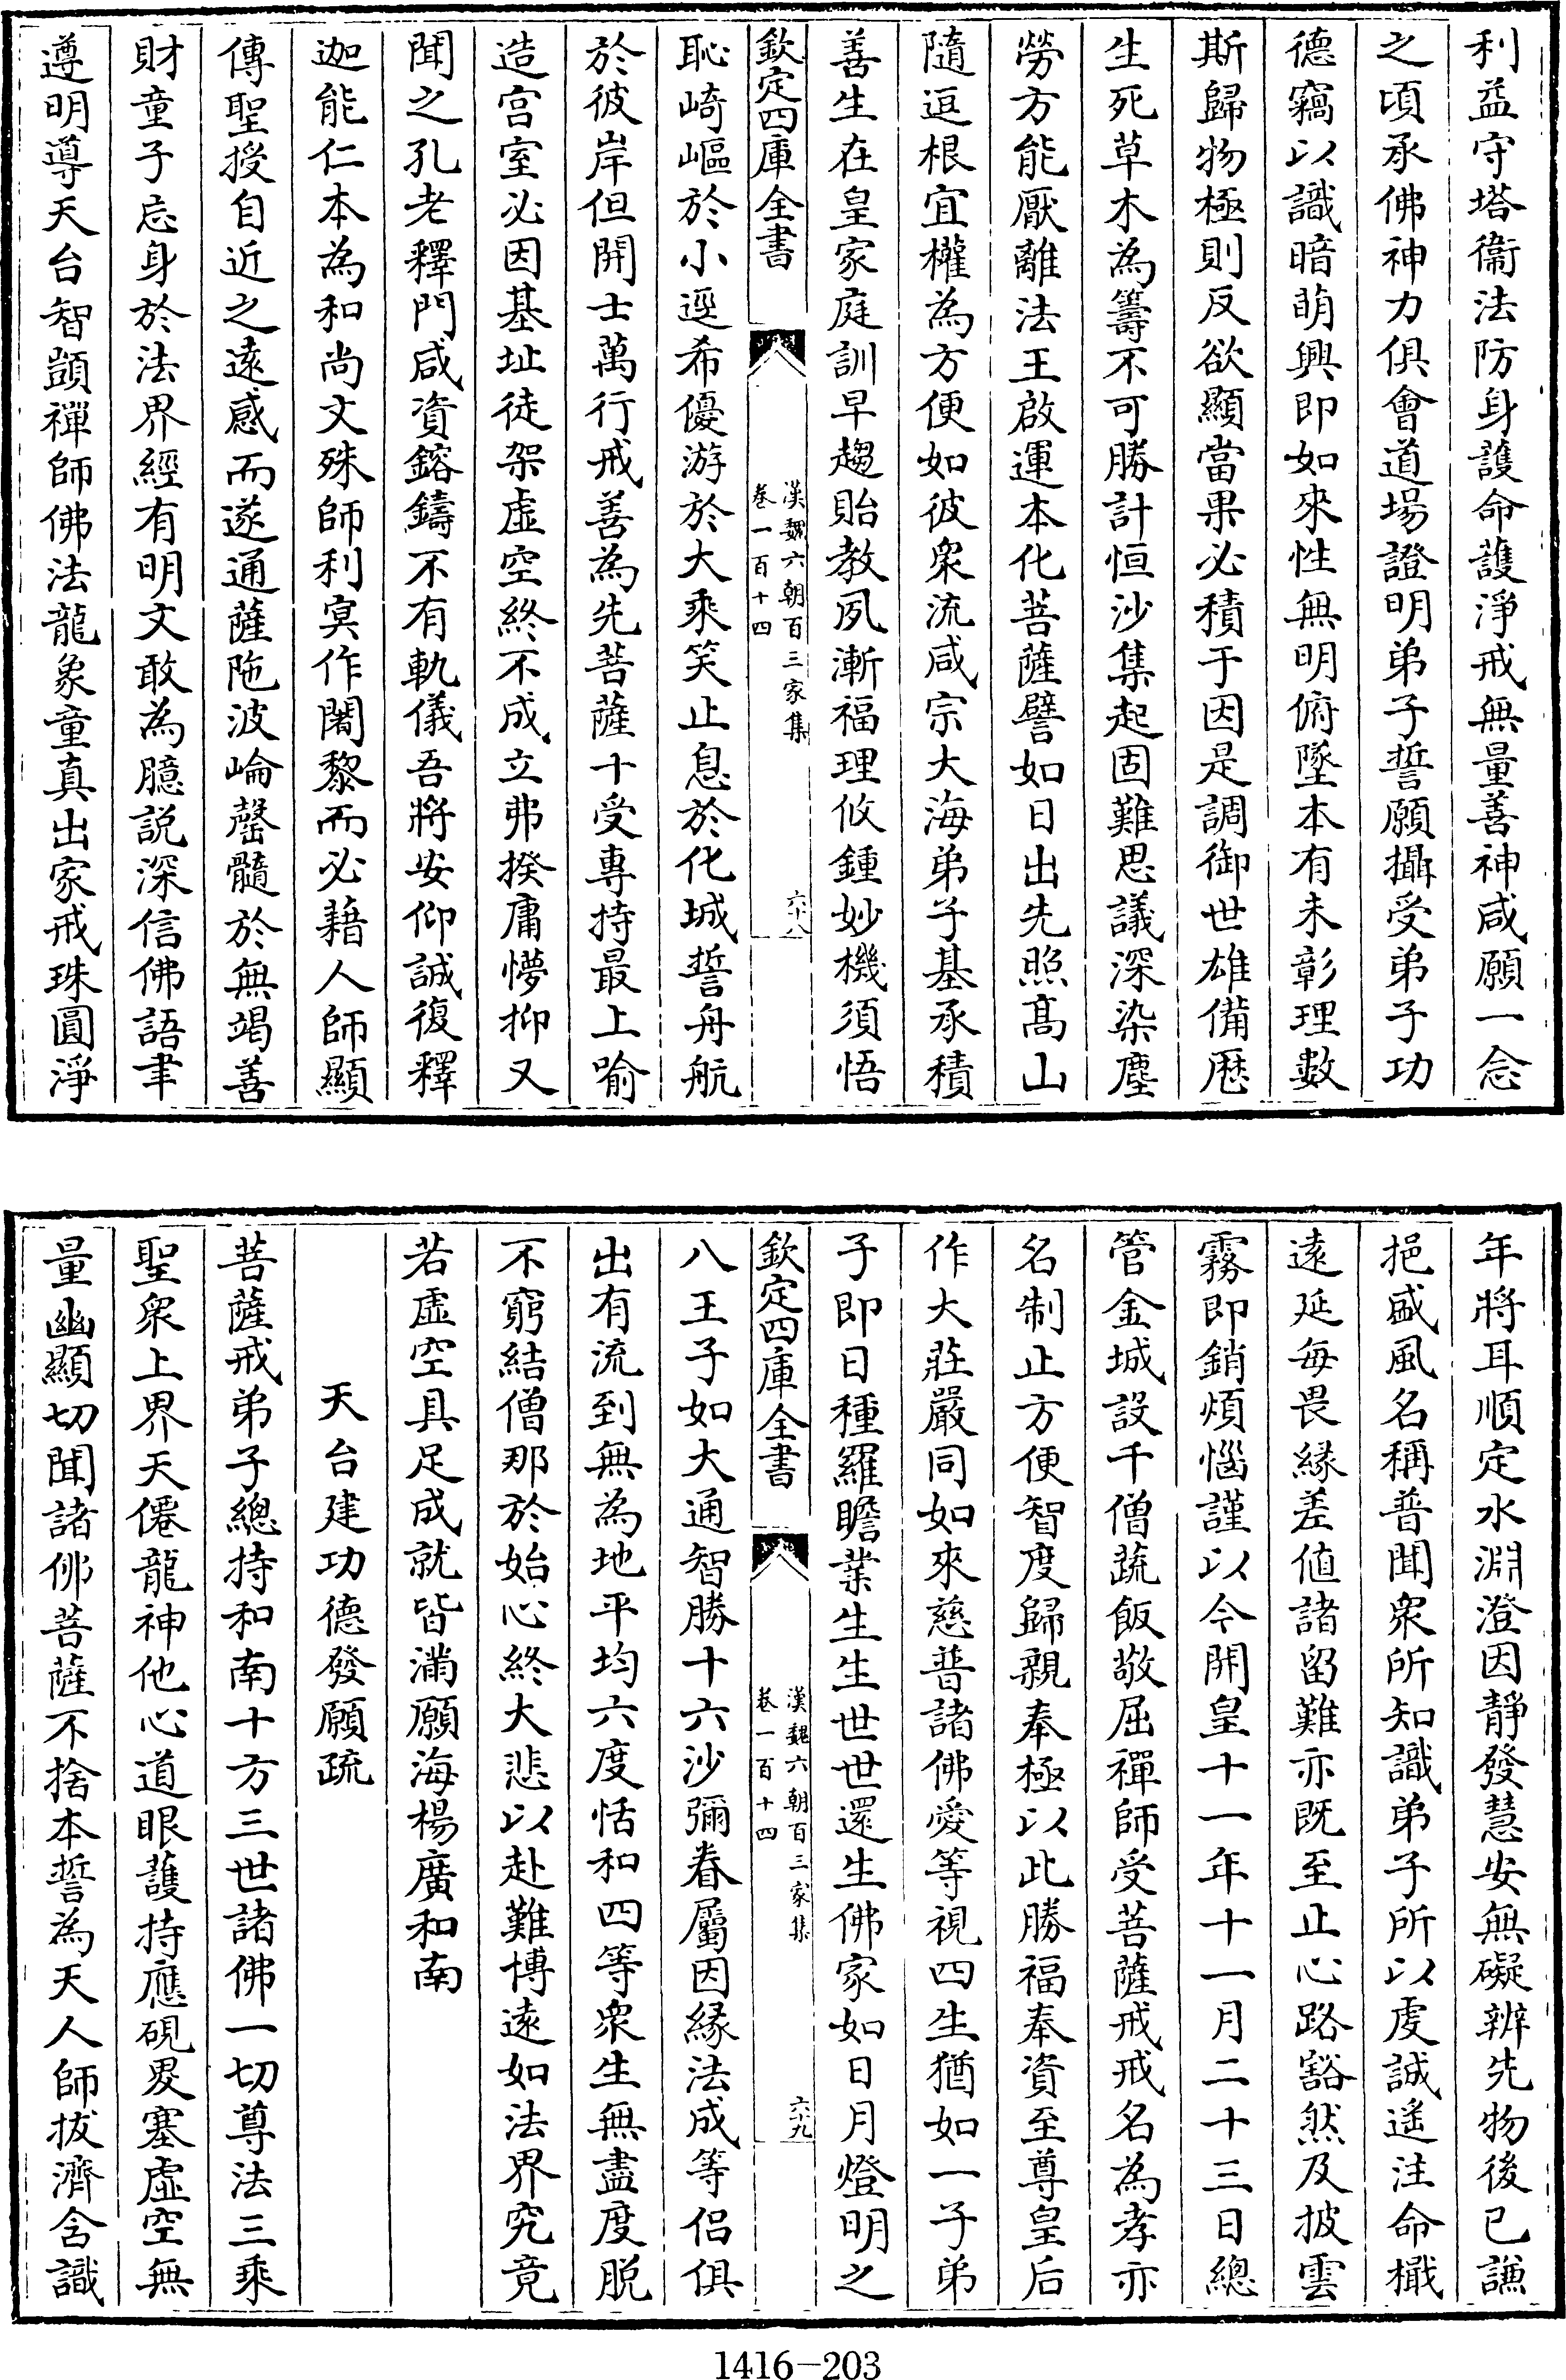 利益守塔衞法防身護命護淨戒無量善神咸願一念
之頃承佛神力俱會道場證明弟子誓願攝受弟子功
德竊以識暗萌興即如來性無明俯墜本有未彰理數
斯歸物極則反欲顯當果必積于因是調御世雄備厯
生死草木為籌不可勝計恒沙集起固難思議深染塵
勞方能厭離法王啟運本化菩薩譬如日出先照髙山
隨逗根宜權為方便如彼衆流咸宗大海弟子基承積
善生在皇家庭訓早趨貽教夙漸福理攸鍾妙機須悟
欽定四庫全書
漢魏六朝百三家集
卷一百十四
六十八
恥崎嶇於小逕希優游於大乘笑止息於化城誓舟航
於彼岸但開士萬行戒善為先菩薩十受專持最上喻
造宫室必因基址徒架虚空終不成立弗揆庸懜抑又
聞之孔老釋門咸資鎔鑄不有軌儀吾將安仰誠復釋
迦能仁本為和尚文殊師利冥作闍黎而必藉人師顯
傳聖授自近之逺感而遂通薩陁波崘罄髓於無竭善
財童子忘身於法界經有明文敢為臆説深信佛語聿
遵明導天台智顗禪師佛法龍象童真出家戒珠圓淨
年將耳順定水淵澄因靜發慧安無礙辨先物後已謙
挹盛風名稱普聞衆所知識弟子所以虔誠遥注命檝
逺延每畏縁差值諸留難亦既至止心路豁然及披雲
霧即銷煩惱謹以今開皇十一年十一月二十三日總
管金城設千僧蔬飯敬屈禪師受菩薩戒戒名為孝亦
名制止方便智度歸親奉極以此勝福奉資至尊皇后
作大莊嚴同如來慈普諸佛愛等視四生猶如一子弟
子即日種羅瞻業生生世世還生佛家如日月燈明之
欽定四庫全書
漢魏六朝百三家集
卷一百十四
六十九
八王子如大通智勝十六沙彌眷屬因縁法成等侣俱
出有流到無為地平均六度恬和四等衆生無盡度脱
不窮結僧那於始心終大悲以赴難博逺如法界究竟
若虚空具足成就皆滿願海楊廣和南
天台建功德發願疏
菩薩戒弟子總持和南十方三世諸佛一切尊法三乘
聖衆上界天僊龍神他心道眼護持應硯畟塞虚空無
量幽顯切聞諸佛菩薩不捨本誓為天人師拔濟含識
1416-203